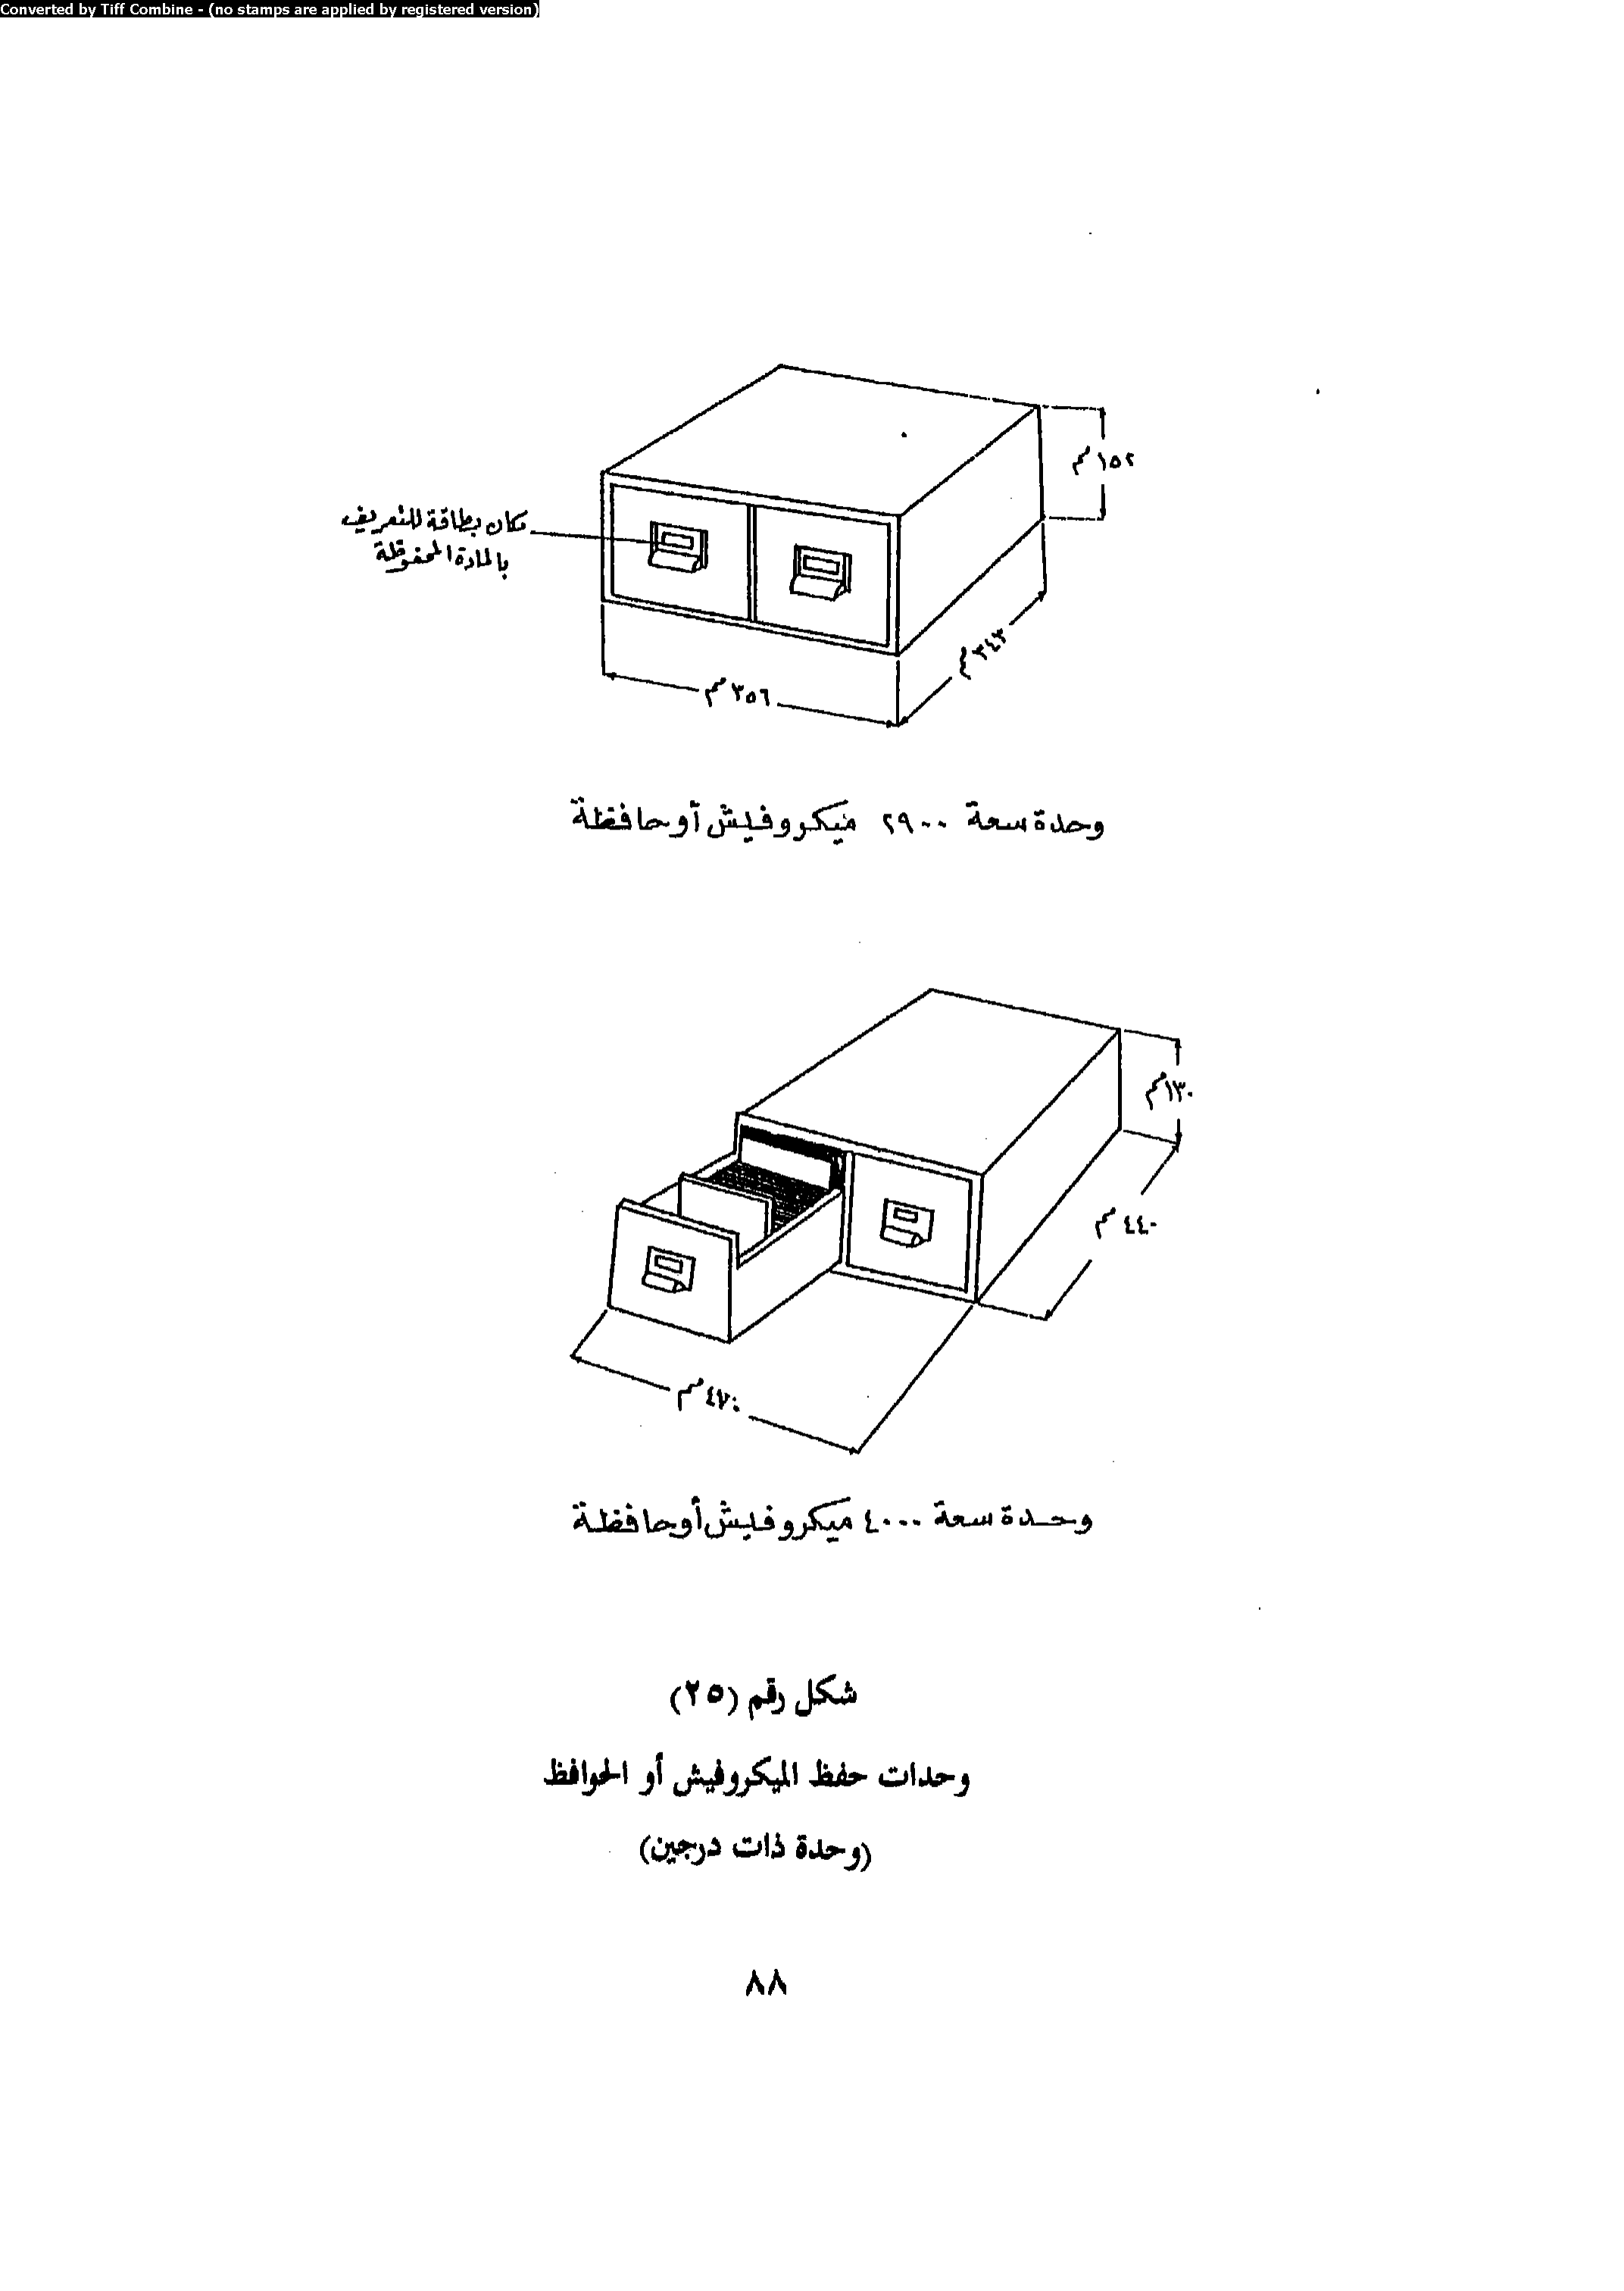 Converted by Tiff Combine - (no stamps are applied by registered version)
١٥٢ مم
مكان بطاقة للتعريف
بالمادة المحفوظة
٣٤٣ مم
٣٥٦ مم
وحدة سعة ٢٩٠٠ ميكروفيش أو حافظة
١٣٠ مم
٤٤٠ مم
٤٧٠ مم
وحدة سعة ٤٠٠٠ ميكروفيش أو حافظة
شكل رقم (٢٥)
وحدات حفظ الميكروفيش أو الحوافظ
(وحدة ذات درجين)
٨٨